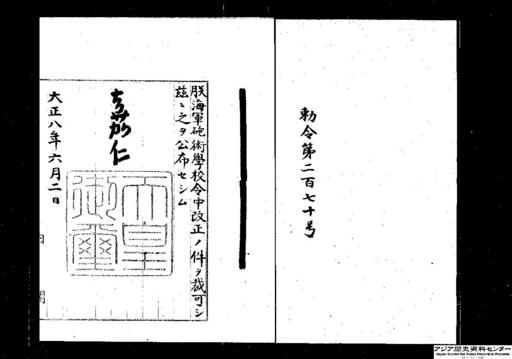 勅令第二百七十号
朕海軍砲術學校令中改正ノ件ヲ裁可シ
茲ニ之ヲ公布セシム
嘉仁
天皇
御璽
大正八年六月二日
内
閣
アジア歴史資料センター
Japan Center for Asian Historical Records